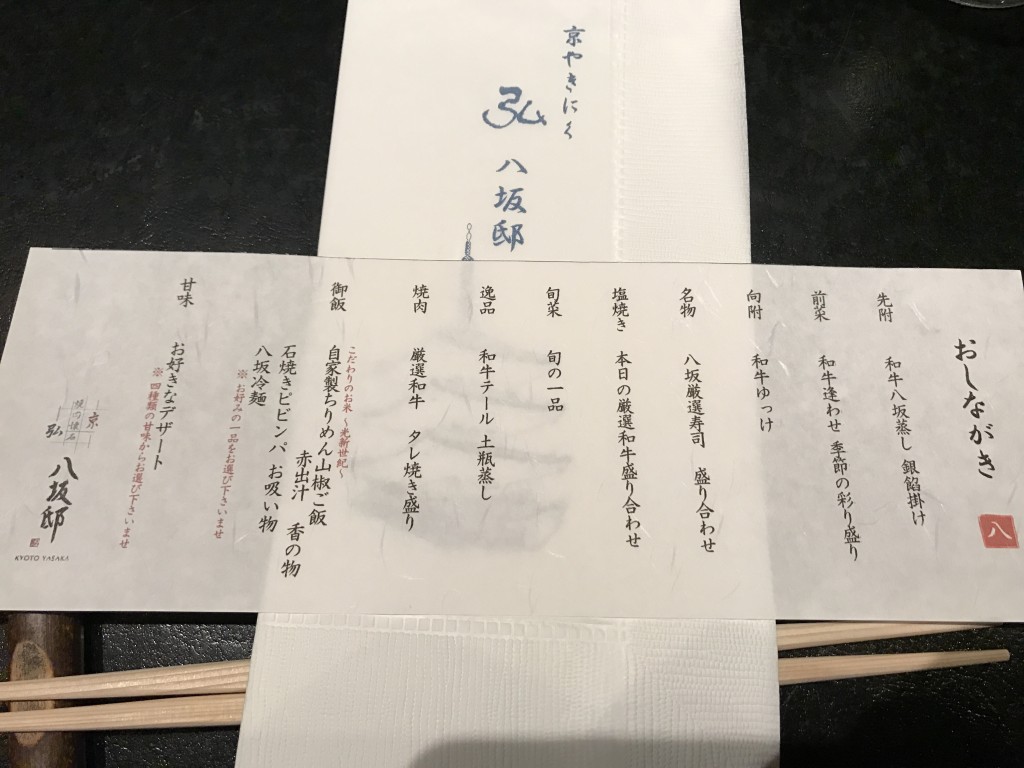 京やきにく
弘
八坂邸
おしながき
八
先附
和牛八坂蒸し 銀餡掛け
前菜
和牛逢わせ 季節の彩り盛り
向附
和牛ゆっけ
名物
八坂厳選寿司 盛り合わせ
塩焼き
本日の厳選和牛盛り合わせ
旬菜
旬の一品
逸品
和牛テール 土瓶蒸し
焼肉
厳選和牛 タレ焼き盛り
御飯
こだわりのお米 ～光新世紀～
自家製ちりめん山椒ご飯
赤出汁 香の物
石焼きビビンパ お吸い物
八坂冷麺
※ お好みの一品をお選び下さいませ
甘味
お好きなデザート
※ 四種類の甘味からお選び下さいませ
京
弘
八坂邸
KYOTO YASAKA